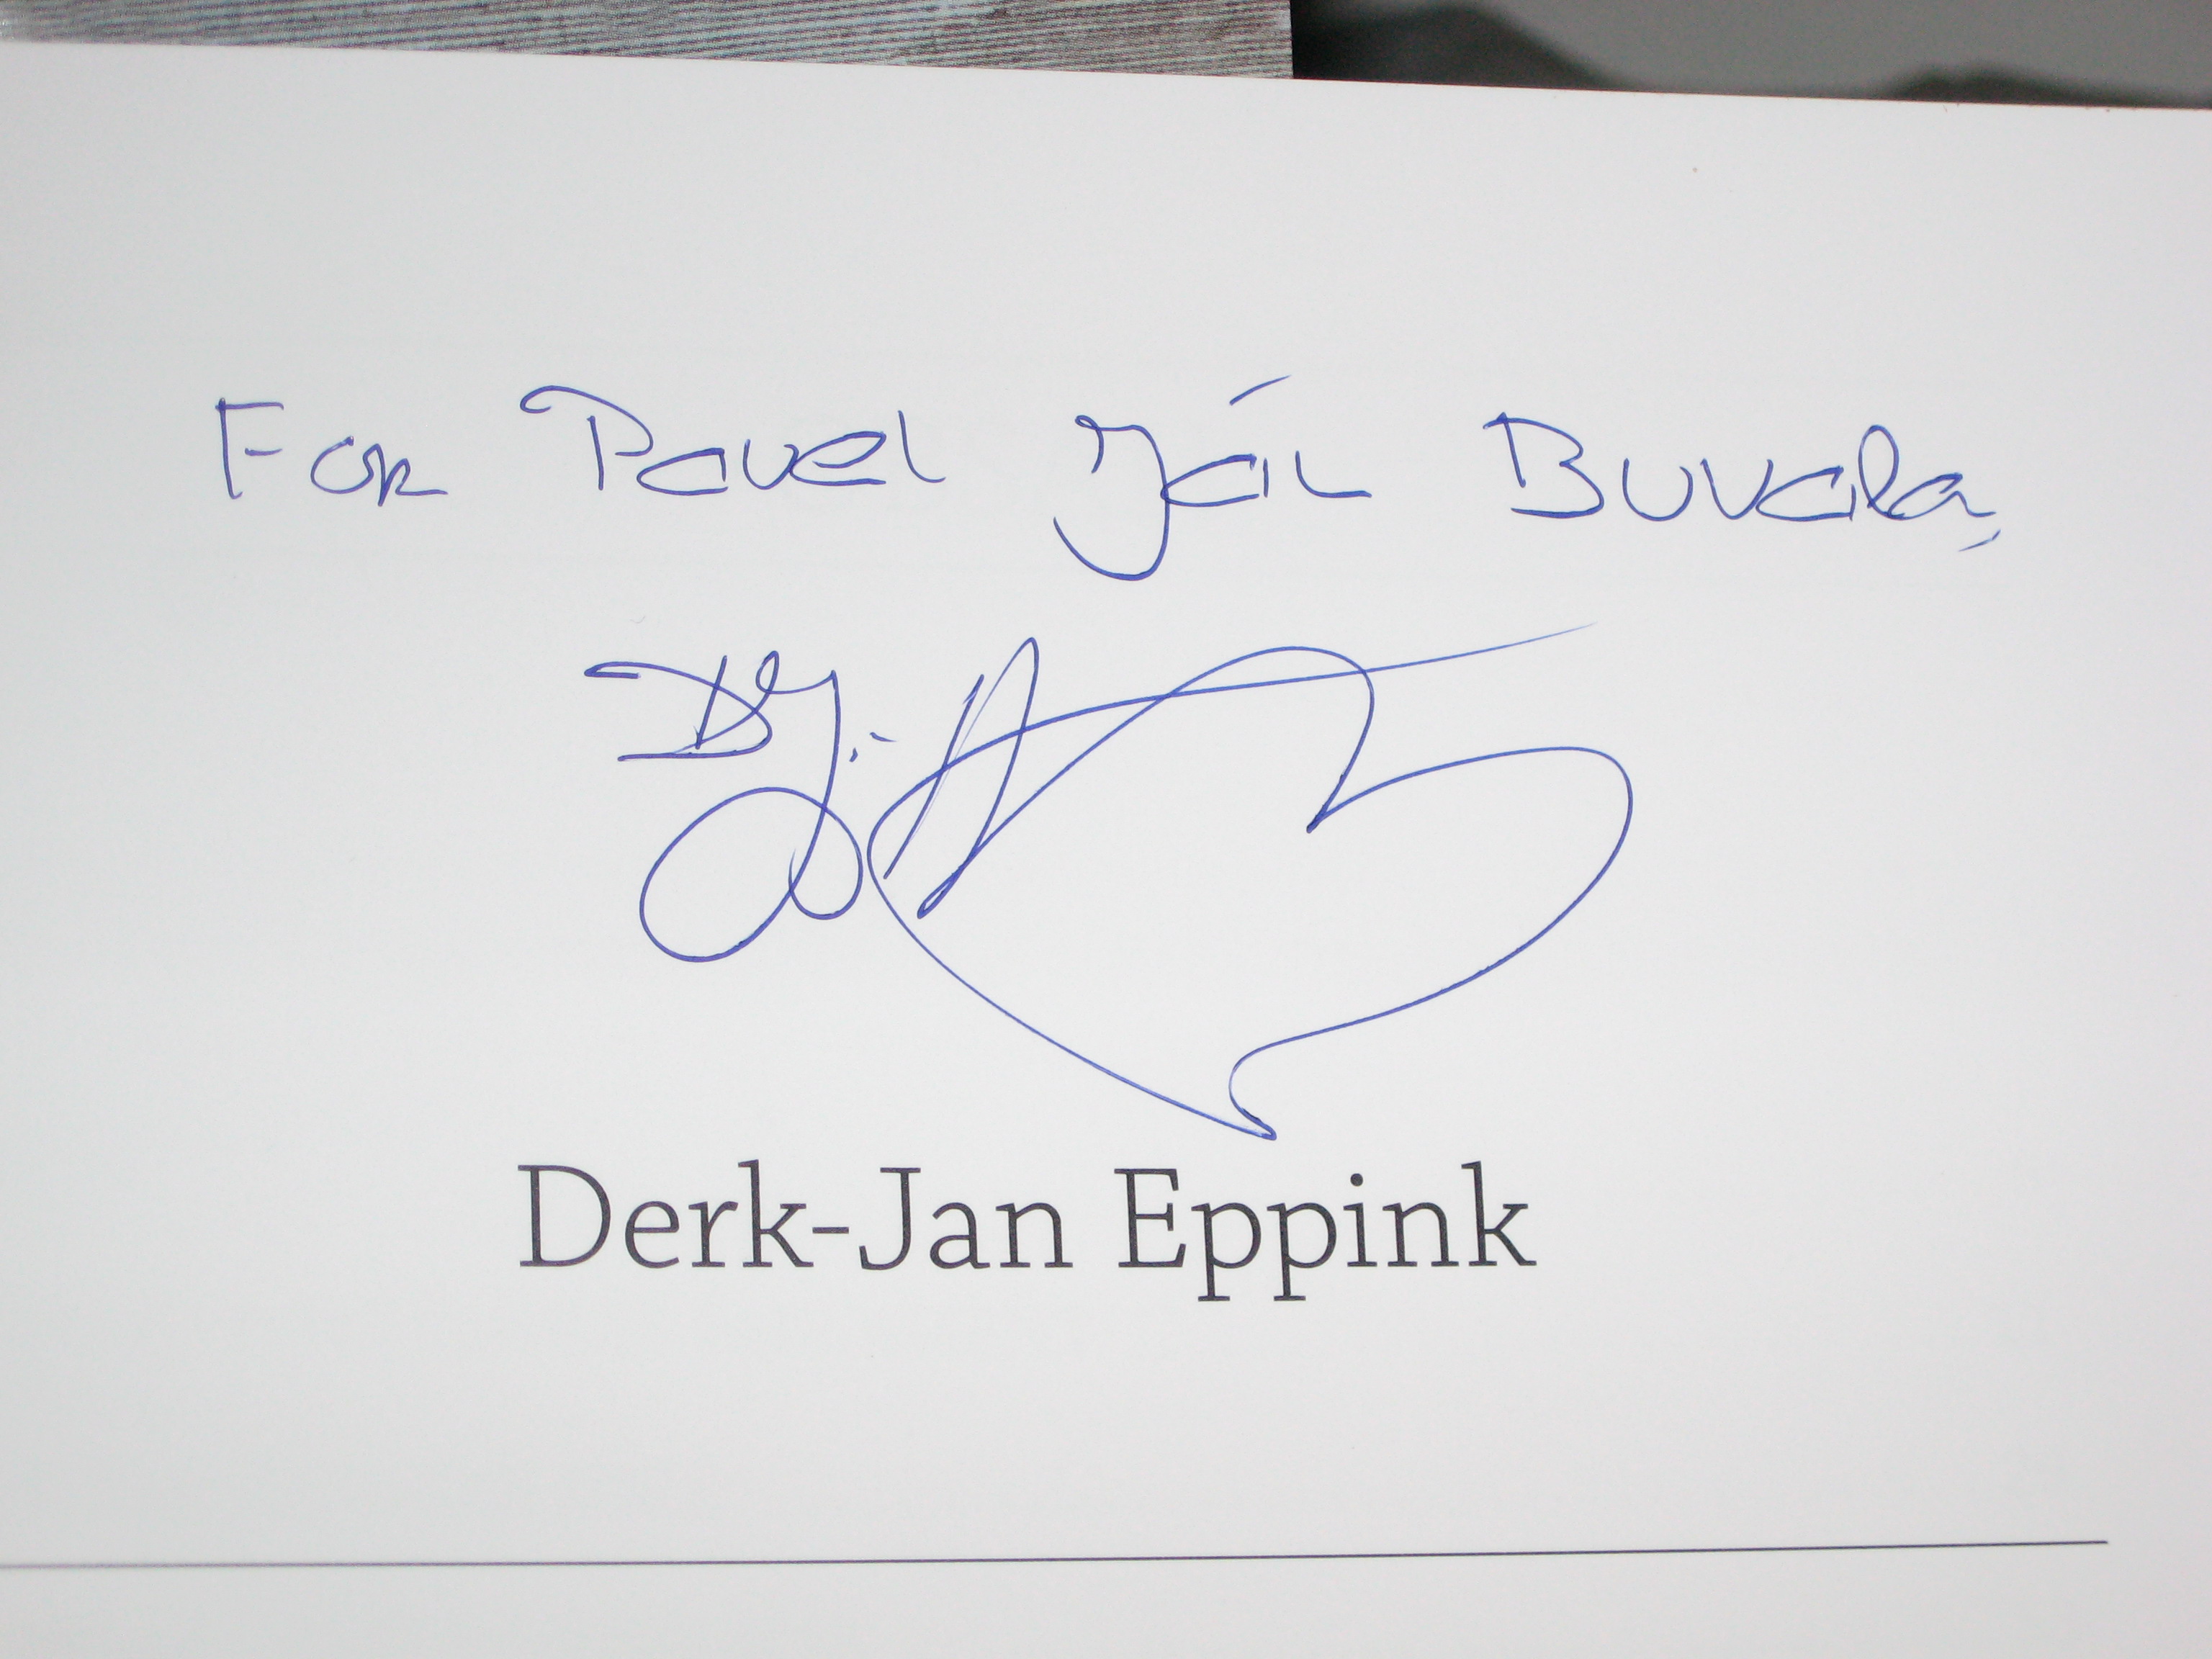 For Pavel Ján Buvala,
Derk-Jan Eppink